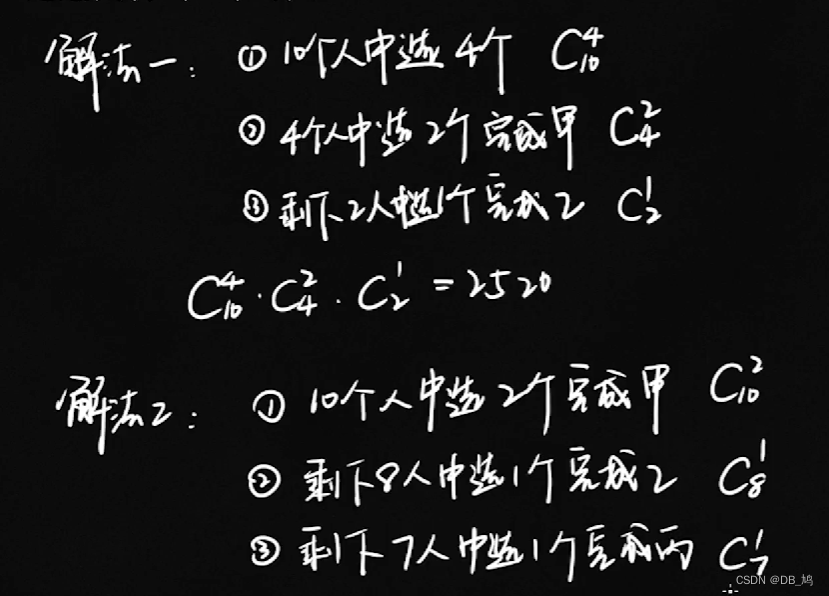 解法一: ① 10个人中选4个 C₁₀⁴
② 4个人中选2个完成甲 C₄²
③ 剩下2人中选1个完成乙 C₂¹
C₁₀⁴·C₄²·C₂¹=2520
解法2: ① 10个人中选2个完成甲 C₁₀²
② 剩下8人中选1个完成乙 C₈¹
③ 剩下7人中选1个完成丙 C₇¹
CSDN @DB_鸠